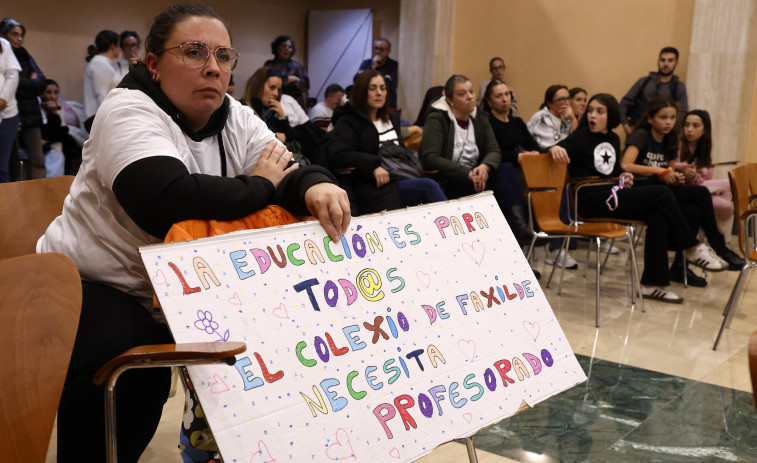 LA EDUCACIÓN ES PARA
TOD@S
EL COLEXIO DE FAXILDE,
NECESITA
PROFESORADO